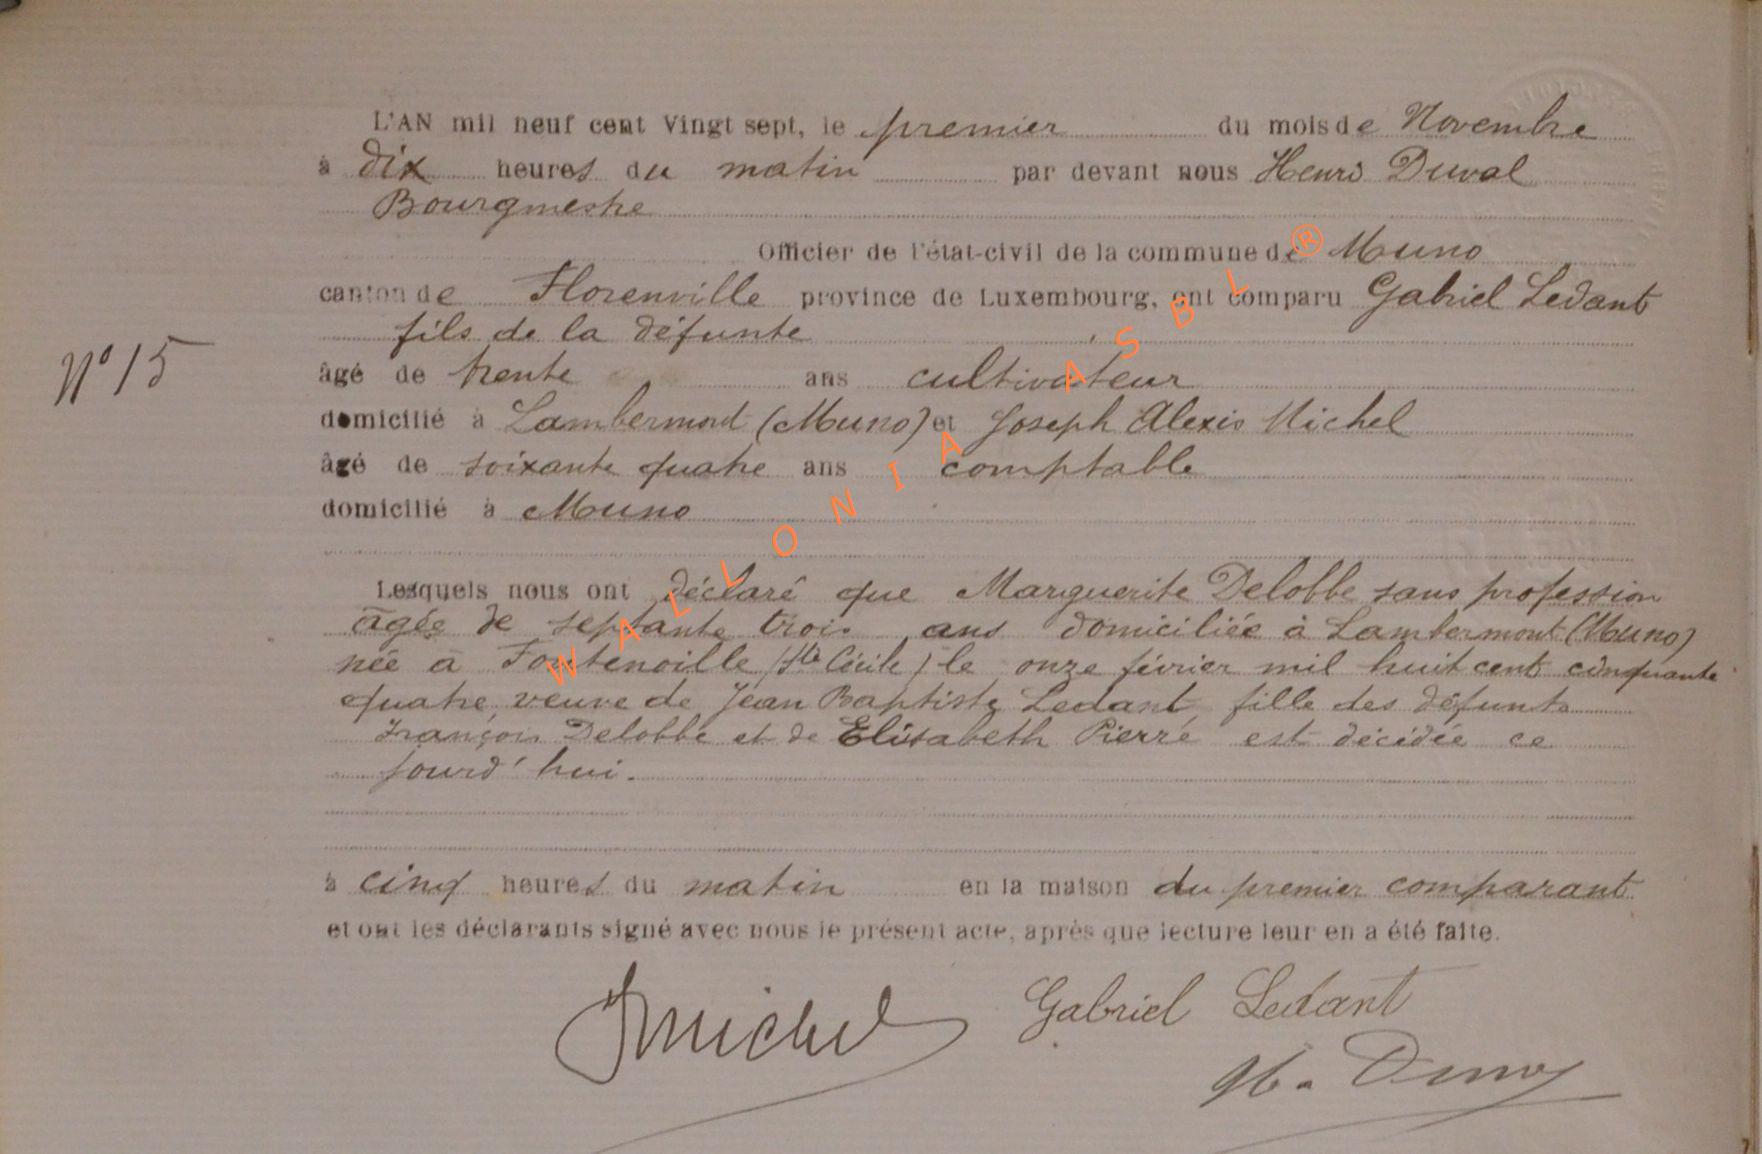 L'AN mil neuf cent Vingt sept, le premier du mois de Novembre
à dix heures du matin par devant nous Henri Duval
Bourgmestre
Officier de l'état-civil de la commune de Muno
canton de Florenville province de Luxembourg, ont comparu Gabriel Ledant
fils de la défunte
N° 15
âgé de trente ans cultivateur
domicilié à Lambermont (Muno) et Joseph Alexis Michel
âgé de soixante quatre ans comptable
domicilié à Muno
Lesquels nous ont déclaré que Marguerite Delobbe sans profession
âgée de septante trois ans domiciliée à Lambermont (Muno)
née à Fontenoille (Ste Cécile) le onze février mil huit cent cinquante
quatre, veuve de Jean Baptiste Ledant, fille des défunts
François Delobbe et de Elisabeth Pierre est décédée ce
jourd'hui.
à cinq heures du matin en la maison du premier comparant
et ont les déclarants signé avec nous le présent acte, après que lecture leur en a été faite.
JMichel Gabriel Ledant
H. Duval
WALLONIA ASBL ®